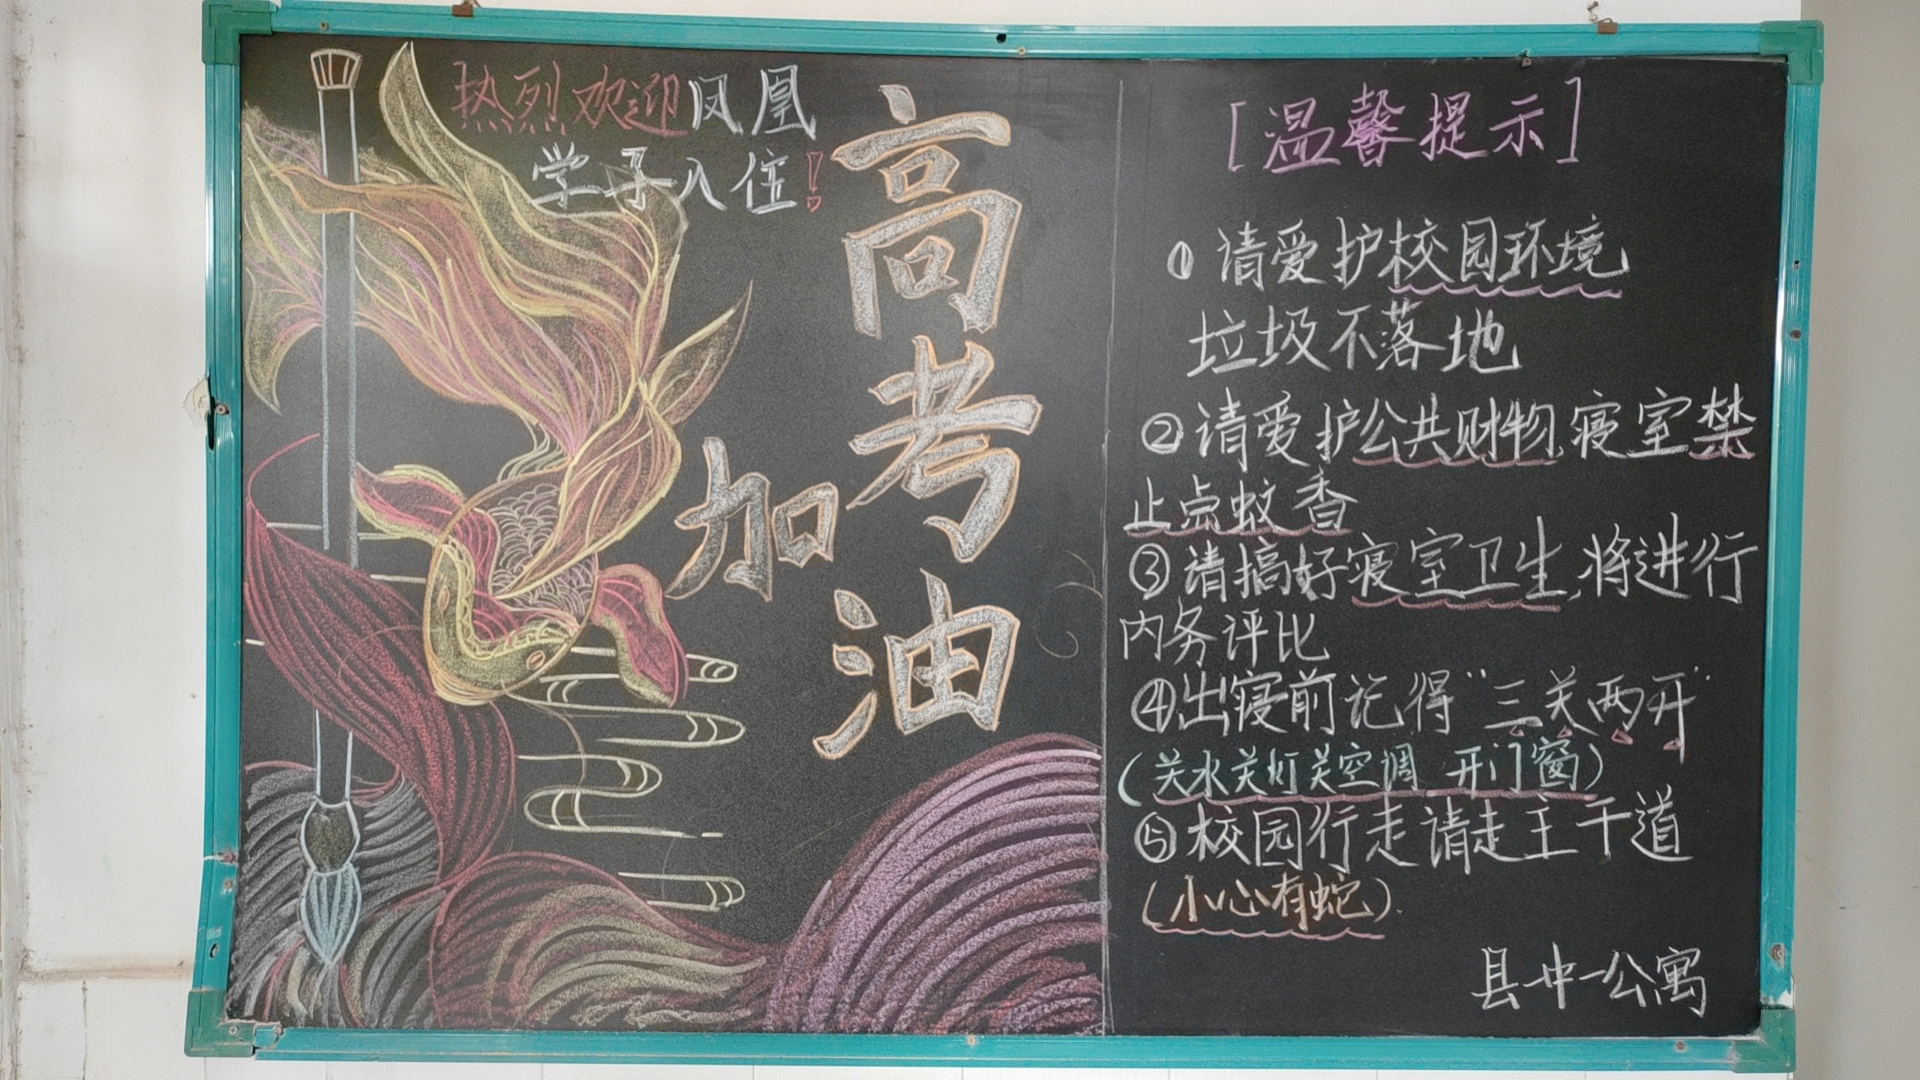 热烈欢迎凤凰
学子入住!
高考
加油
[温馨提示]
① 请爱护校园环境
垃圾不落地
②请爱护公共财物,寝室禁
止点蚊香
③请搞好寝室卫生,将进行
内务评比
④出寝前记得"三关两开"
(关水关灯关空调 开门窗)
⑤校园行走请走主干道
(小心有蛇).
县中公寓